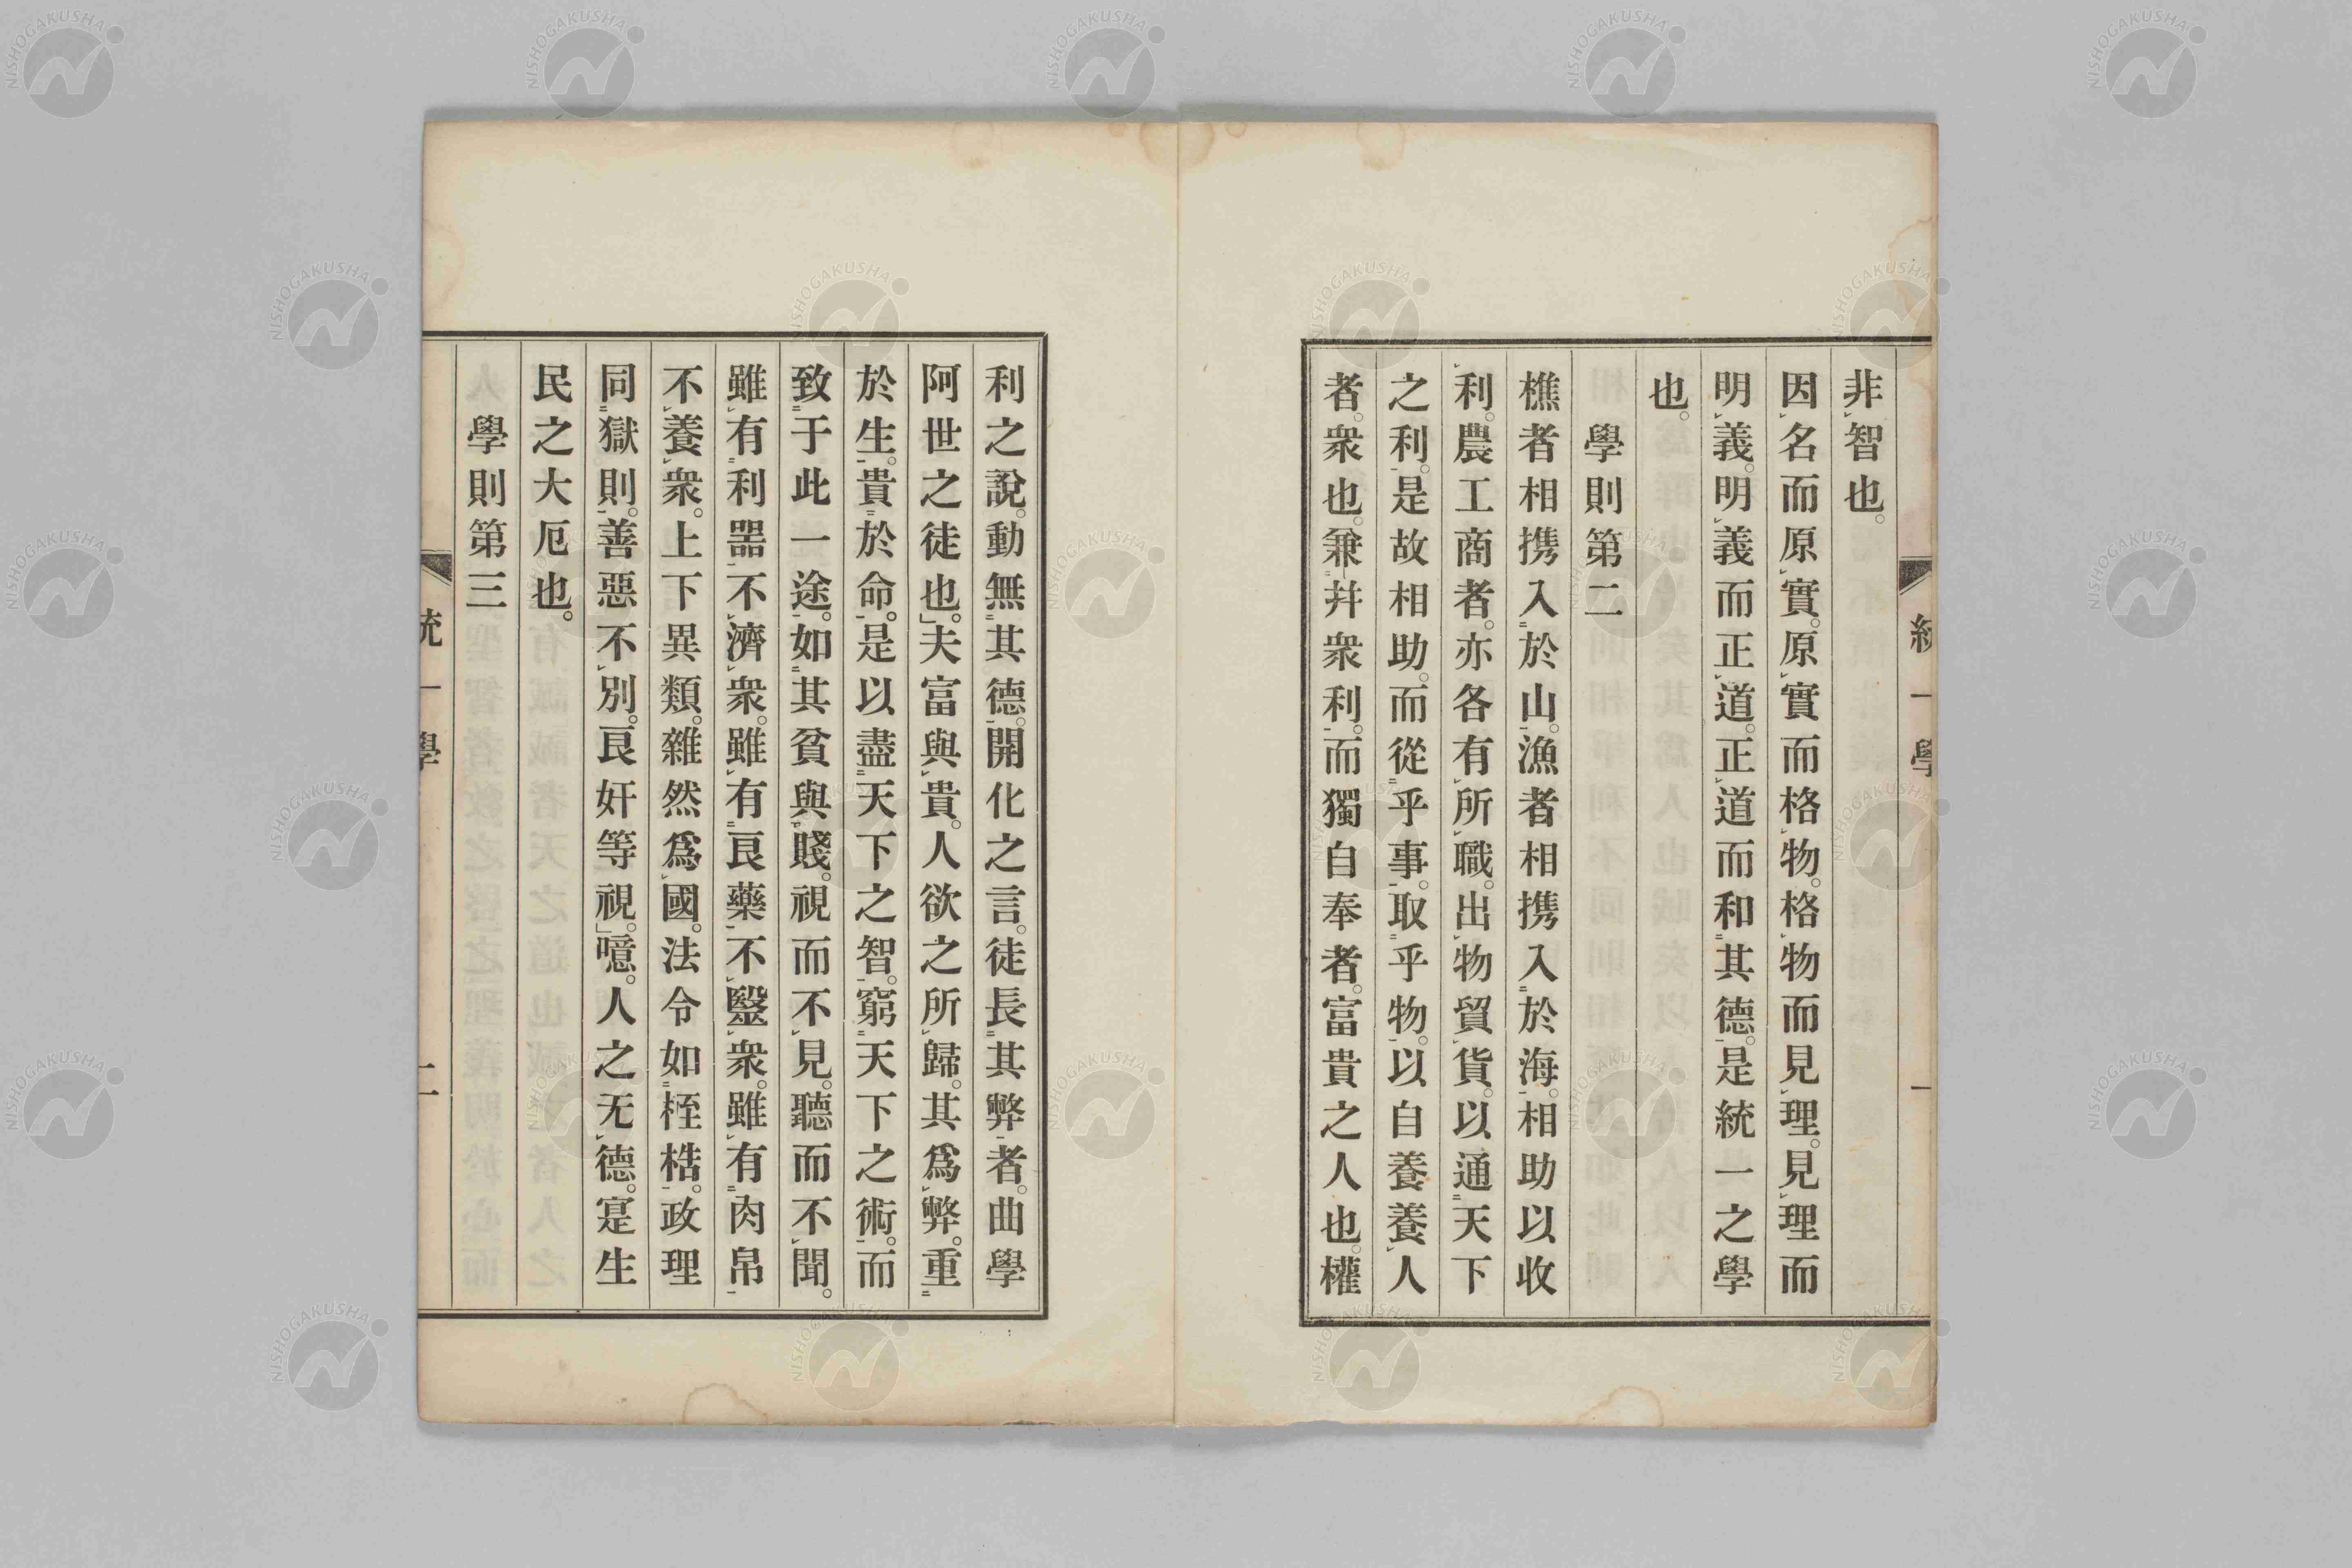 非智也。
因名而原實。原實而格物。格物而見理。見理而
明義。明義而正道。正道而和其德。是統一之學
也。
學則第二
樵者相携入於山。漁者相携入於海。相助以收
利。農工商者。亦各有所職。出物貿貨。以通天下
之利。是故相助。而從乎事。取乎物。以自養養人
者。衆也。兼幷衆利。而獨自奉者。富貴之人也。權
統一學
一
利之說。動無其德。開化之言。徒長其弊者。曲學
阿世之徒也」。夫富與貴。人欲之所歸。其爲弊。重
於生。貴於命。是以盡天下之智。窮天下之術。而
致于此一途。如其貧與賤。視而不見。聽而不聞。
雖有利噐不濟衆。雖有良藥不毉衆。雖有肉帛
不養衆。上下異類。雜然爲國。法令如桎梏。政理
同獄則。善惡不別。良奸等視」。噫。人之无德。寔生
民之大厄也。
學則第三
統一學
二
NISHOGAKUSHA